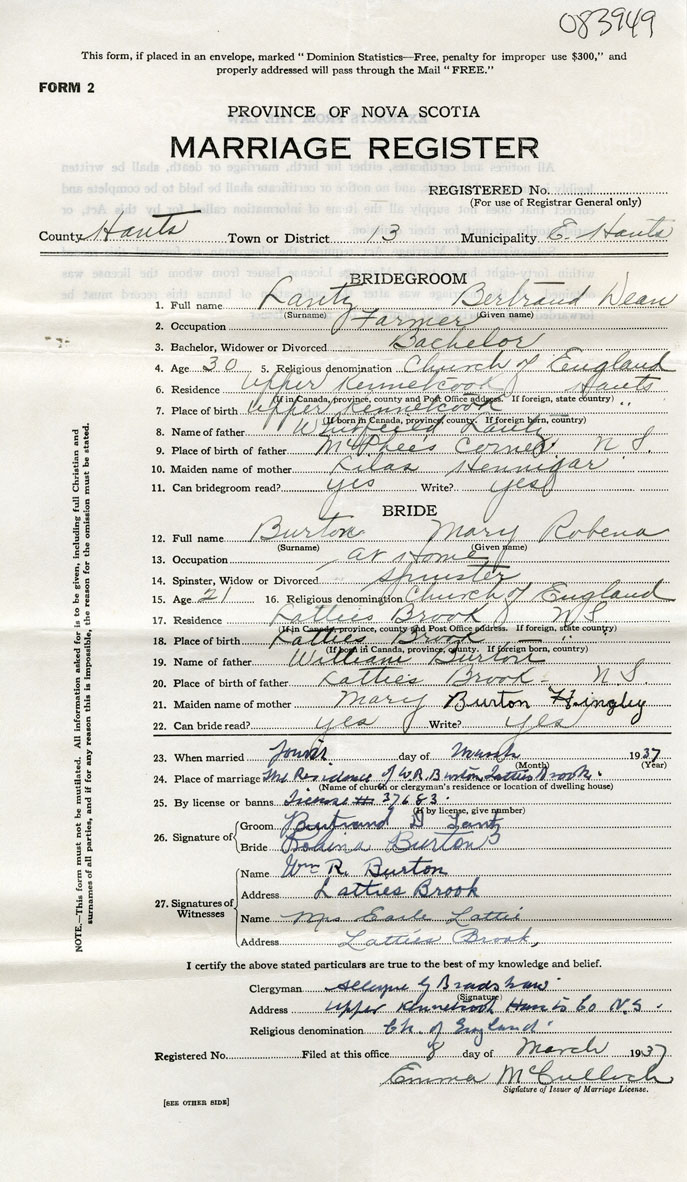 083949
This form, if placed in an envelope, marked "Dominion Statistics—Free, penalty for improper use $300," and
properly addressed will pass through the Mail "FREE."
FORM 2
PROVINCE OF NOVA SCOTIA
MARRIAGE REGISTER
REGISTERED No.
(For use of Registrar General only)
County Hants Town or District 13 Municipality E. Hants
BRIDEGROOM
1. Full name Lantz Bertrand Dean
(Surname) (Given name)
2. Occupation Farmer
3. Bachelor, Widower or Divorced Bachelor
4. Age 30 5. Religious denomination Church of England
6. Residence Upper Kennetcook Hants
(If in Canada, province, county and Post Office address. If foreign, state country)
7. Place of birth Upper Kennetcook "
(If born in Canada, province, county. If foreign born, country)
8. Name of father Whitfield Lantz
9. Place of birth of father McPhees Corner. N S.
10. Maiden name of mother Hennigar
11. Can bridegroom read? yes Write? yes
BRIDE
12. Full name Burton Mary Robena
(Surname) (Given name)
13. Occupation at Home
14. Spinster, Widow or Divorced Spinster
15. Age 21 16. Religious denomination Church of England
17. Residence Latties Brook N S
(If in Canada, province, county and Post Office address. If foreign, state country)
18. Place of birth Latties Brook — "
(If born in Canada, province, county. If foreign born, country)
19. Name of father William Burton
20. Place of birth of father Latties Brook - N S.
21. Maiden name of mother Mary Burton Hingley
22. Can bride read? yes Write? yes
23. When married day of March 1937
(Month) (Year)
24. Place of marriage The Residence of W R Burton Latties Brook.
(Name of church or clergyman's residence or location of dwelling house)
25. By license or banns License # 37683.
(If by license, give number)
26. Signature of Groom Bertrand D Lantz
Bride Robena Burton
27. Signatures of Witnesses Name Wm R. Burton
Address Latties Brook
Name Mrs Earle Lattie
Address Latties Brook,
I certify the above stated particulars are true to the best of my knowledge and belief.
Clergyman G Bradshaw
(Signature)
Address Upper Kennetcook Hants Co N.S.
Religious denomination Ch. of England
Registered No. Filed at this office 8 day of March 1937
Emma McCulloch
Signature of Issuer of Marriage License.
[SEE OTHER SIDE]
NOTE.—This form must not be mutilated. All information asked for is to be given, including full Christian and
surnames of all parties, and if for any reason this is impossible, the reason for the omission must be stated.